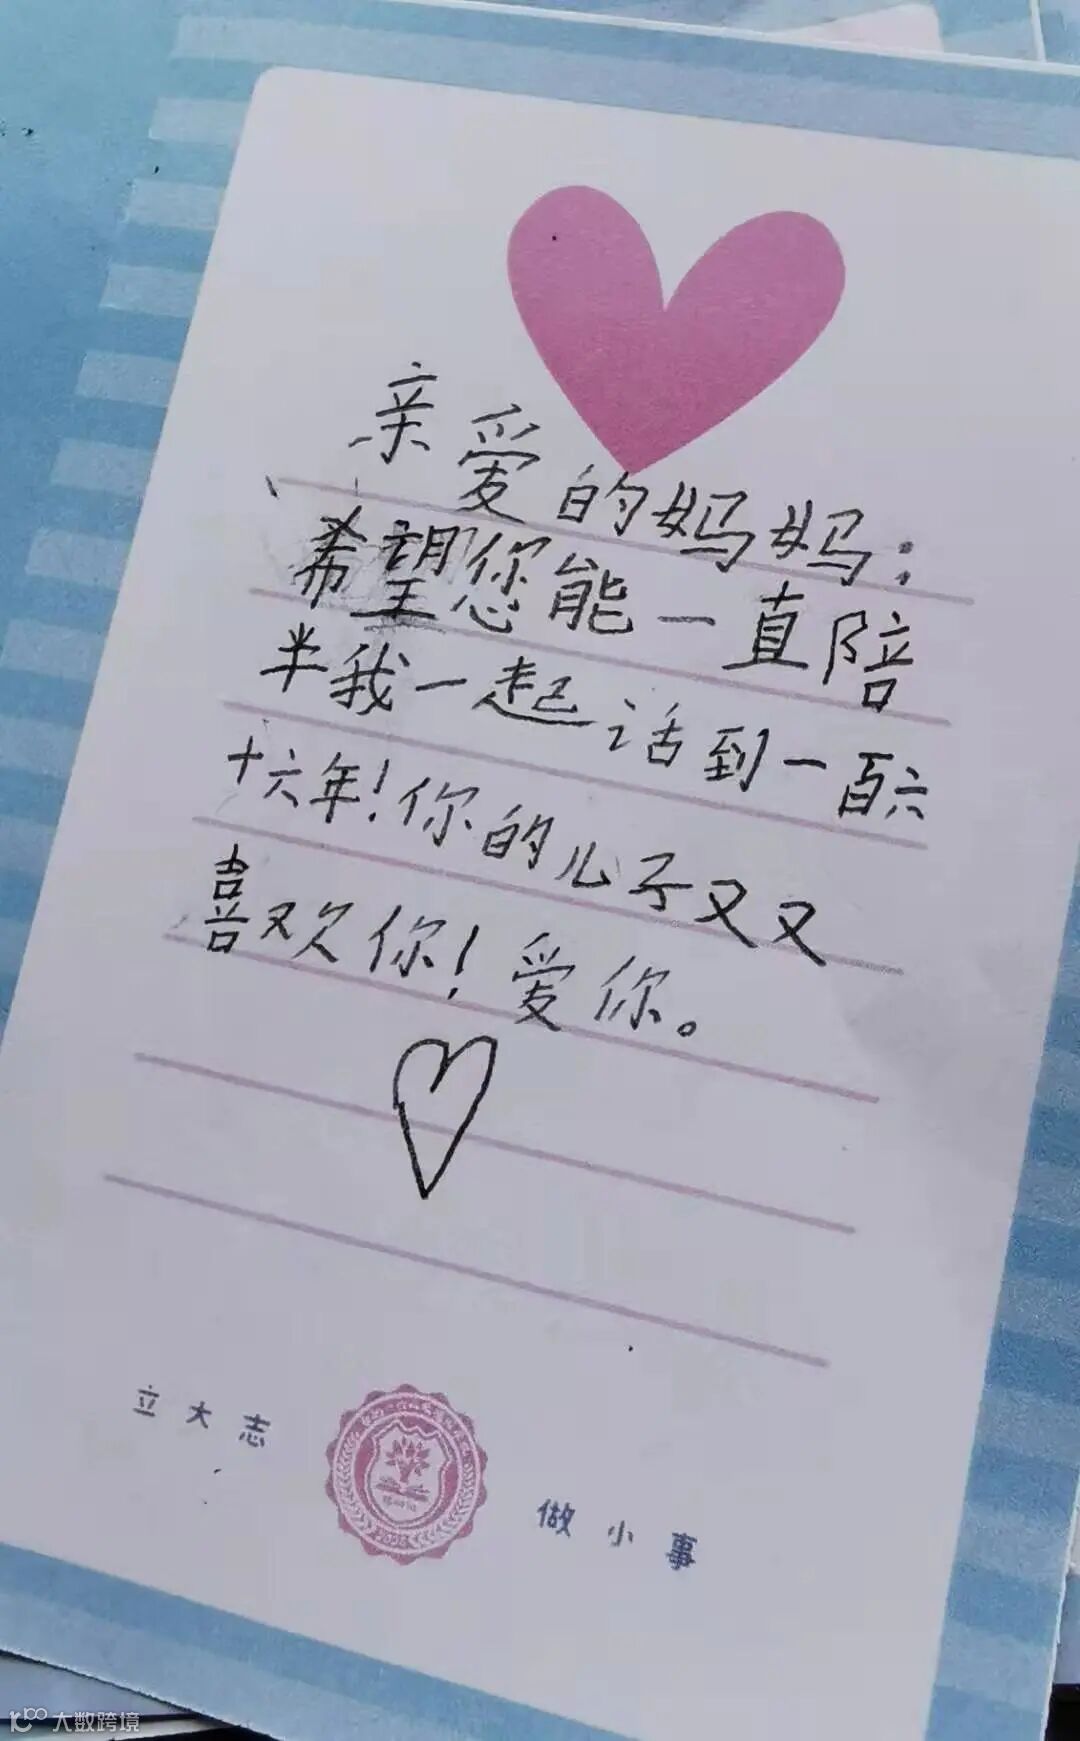 亲爱的妈妈：
希望您能一直陪
半我一起话到一百六
十六年！你的儿子又又
喜欢你！爱你。
立大志
做小事
大数跨境